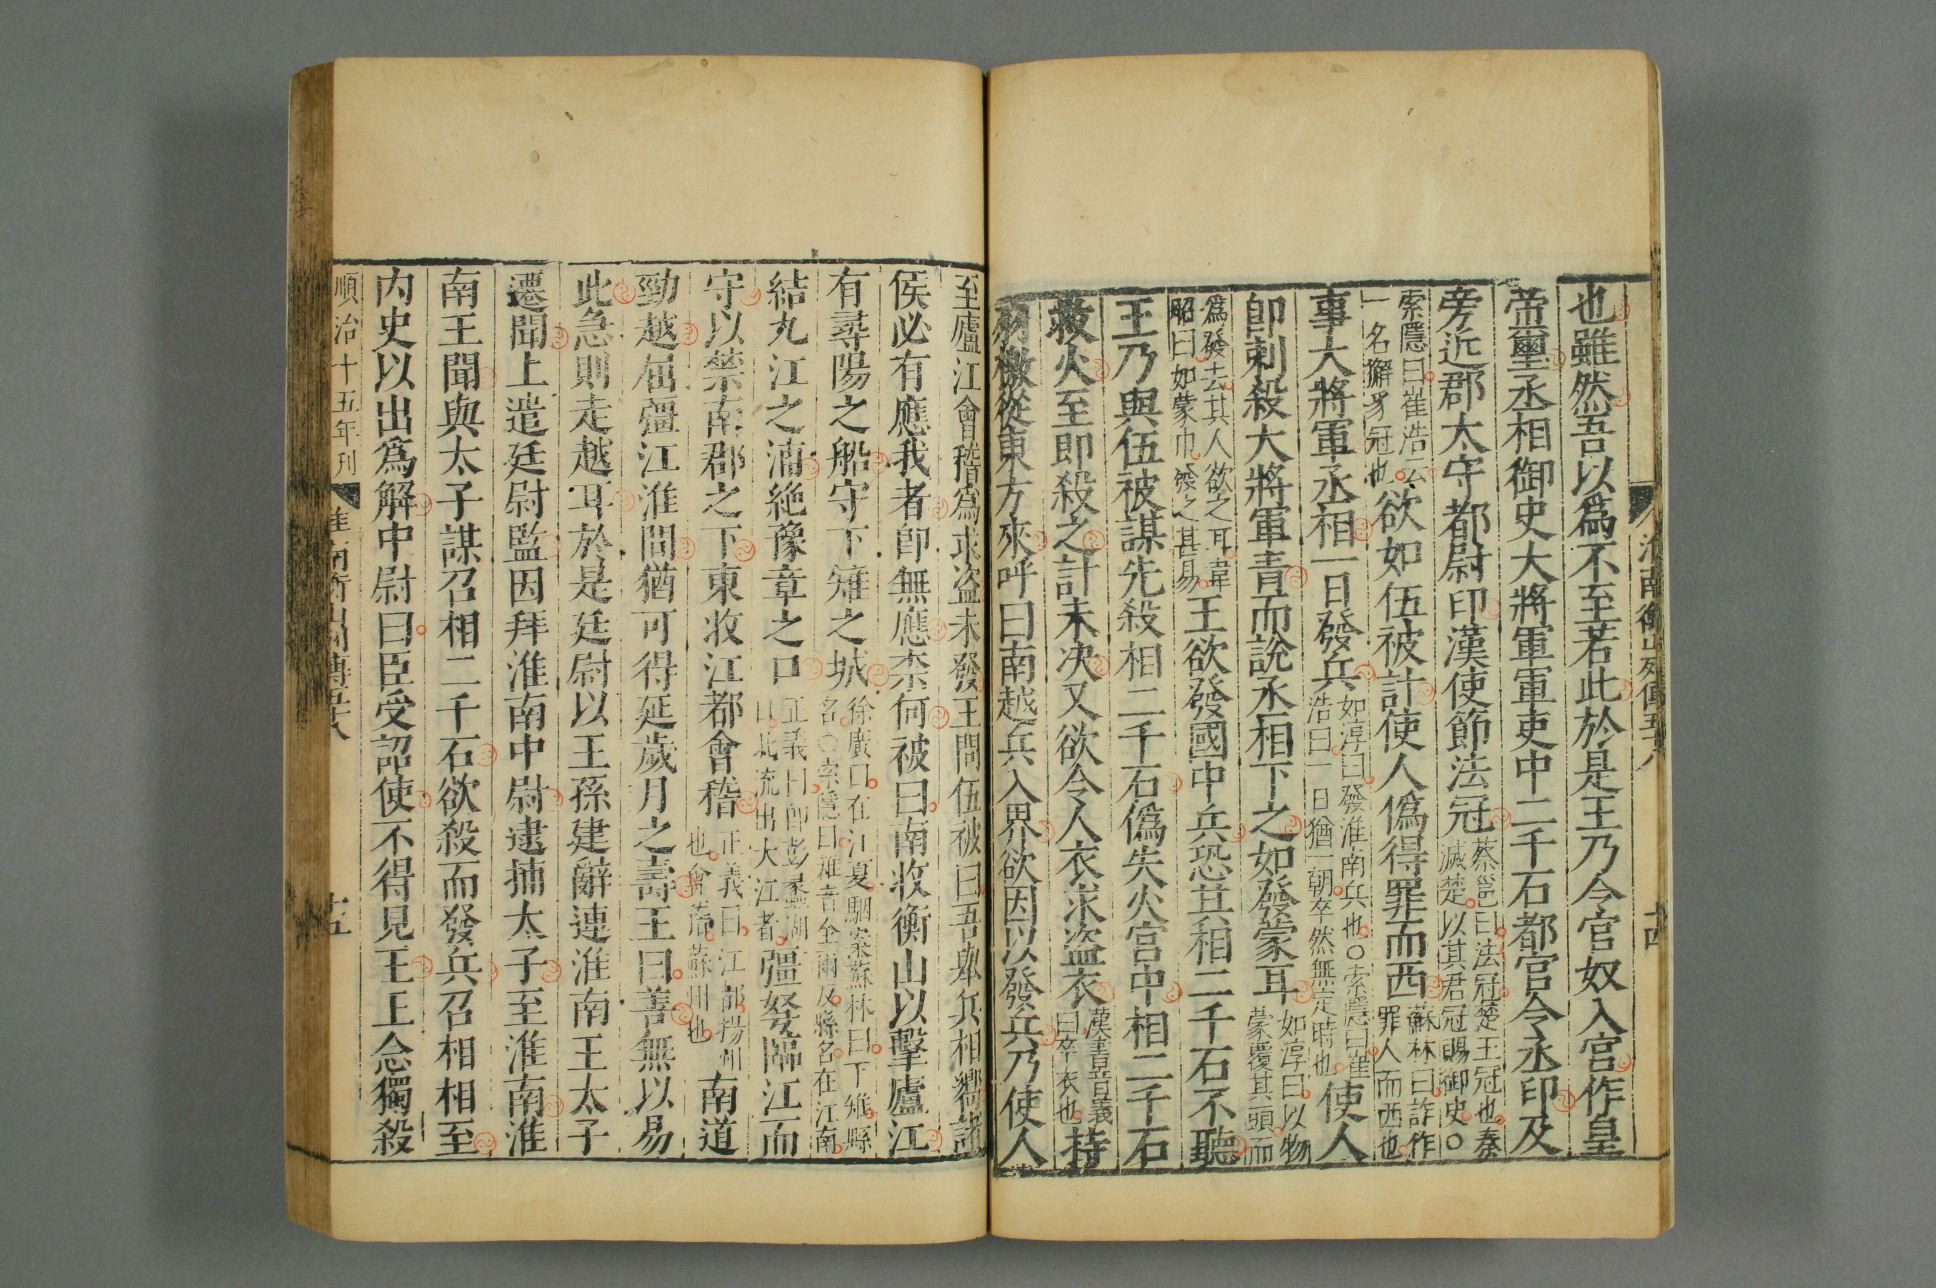 淮南衡山列傳五十八
十四
也雖然吾以爲不至若此於是王乃令官奴入宮作皇
帝璽丞相御史大將軍軍吏中二千石都官令丞印及
旁近郡太守都尉印漢使節法冠蔡邕曰法冠楚王冠也秦滅楚以其君冠賜御史○
索隱曰崔浩云一名獬豸冠也欲如伍被計使人僞得罪而西蘇林曰詐作罪人而西也
事大將軍丞相一日發兵如淳曰發淮南兵也○索隱曰崔浩曰一日猶一朝卒然無定時也使人
卽刺殺大將軍青而說丞相下之如發蒙耳如淳曰以物蒙覆其頭而
爲發去其人欲之耳韋昭曰如蒙巾發之甚易王欲發國中兵恐其相二千石不聽
王乃與伍被謀先殺相二千石僞失火宮中相二千石
救火至卽殺之計未決又欲令人衣求盜衣漢書音義曰卒衣也持
羽檄從東方來呼曰南越兵入界欲因以發兵乃使人
至廬江會稽爲求盜未發王問伍被曰吾舉兵相嚮諸
侯必有應我者卽無應柰何被曰南收衡山以擊廬江
有尋陽之船守下雉之城徐廣曰在江夏駰案蘇林曰下雉縣名○索隱曰雉音全爾反縣名在江南
結九江之浦絶豫章之口正義曰卽彭蠡湖口北流出大江者彊弩臨江而
守以禁南郡之下東收江都會稽正義曰江都揚州也會稽蘇州也南道
勁越屈彊江淮間猶可得延歲月之壽王曰善無以易
此急則走越耳於是廷尉以王孫建辭連淮南王太子
遷聞上遣廷尉監因拜淮南中尉逮捕太子至淮南淮
南王聞與太子謀召相二千石欲殺而發兵召相相至
內史以出爲解中尉曰臣受詔使不得見王王念獨殺
順治十五年刊
淮南衡山列傳五十八
十五